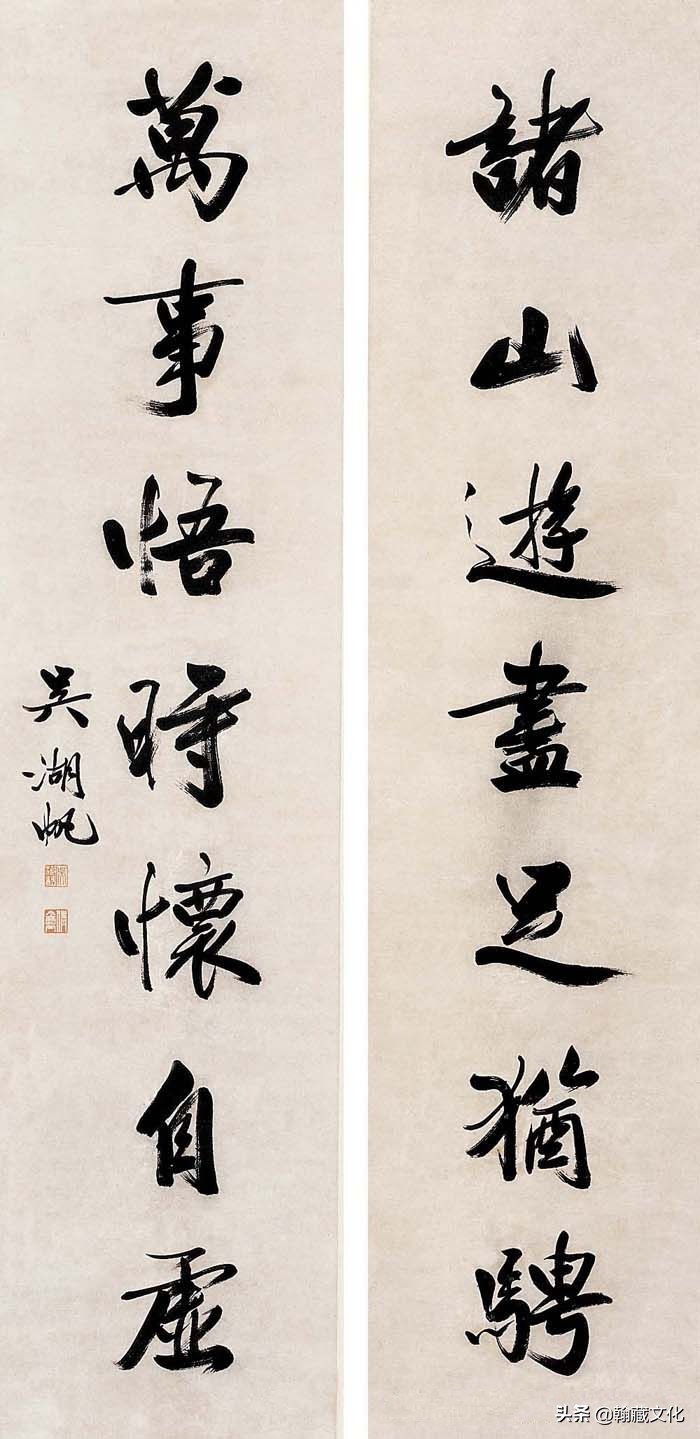 諸山遊盡足猶騁
萬事悟時懷自虛
吳湖帆
头条 @翰藏文化